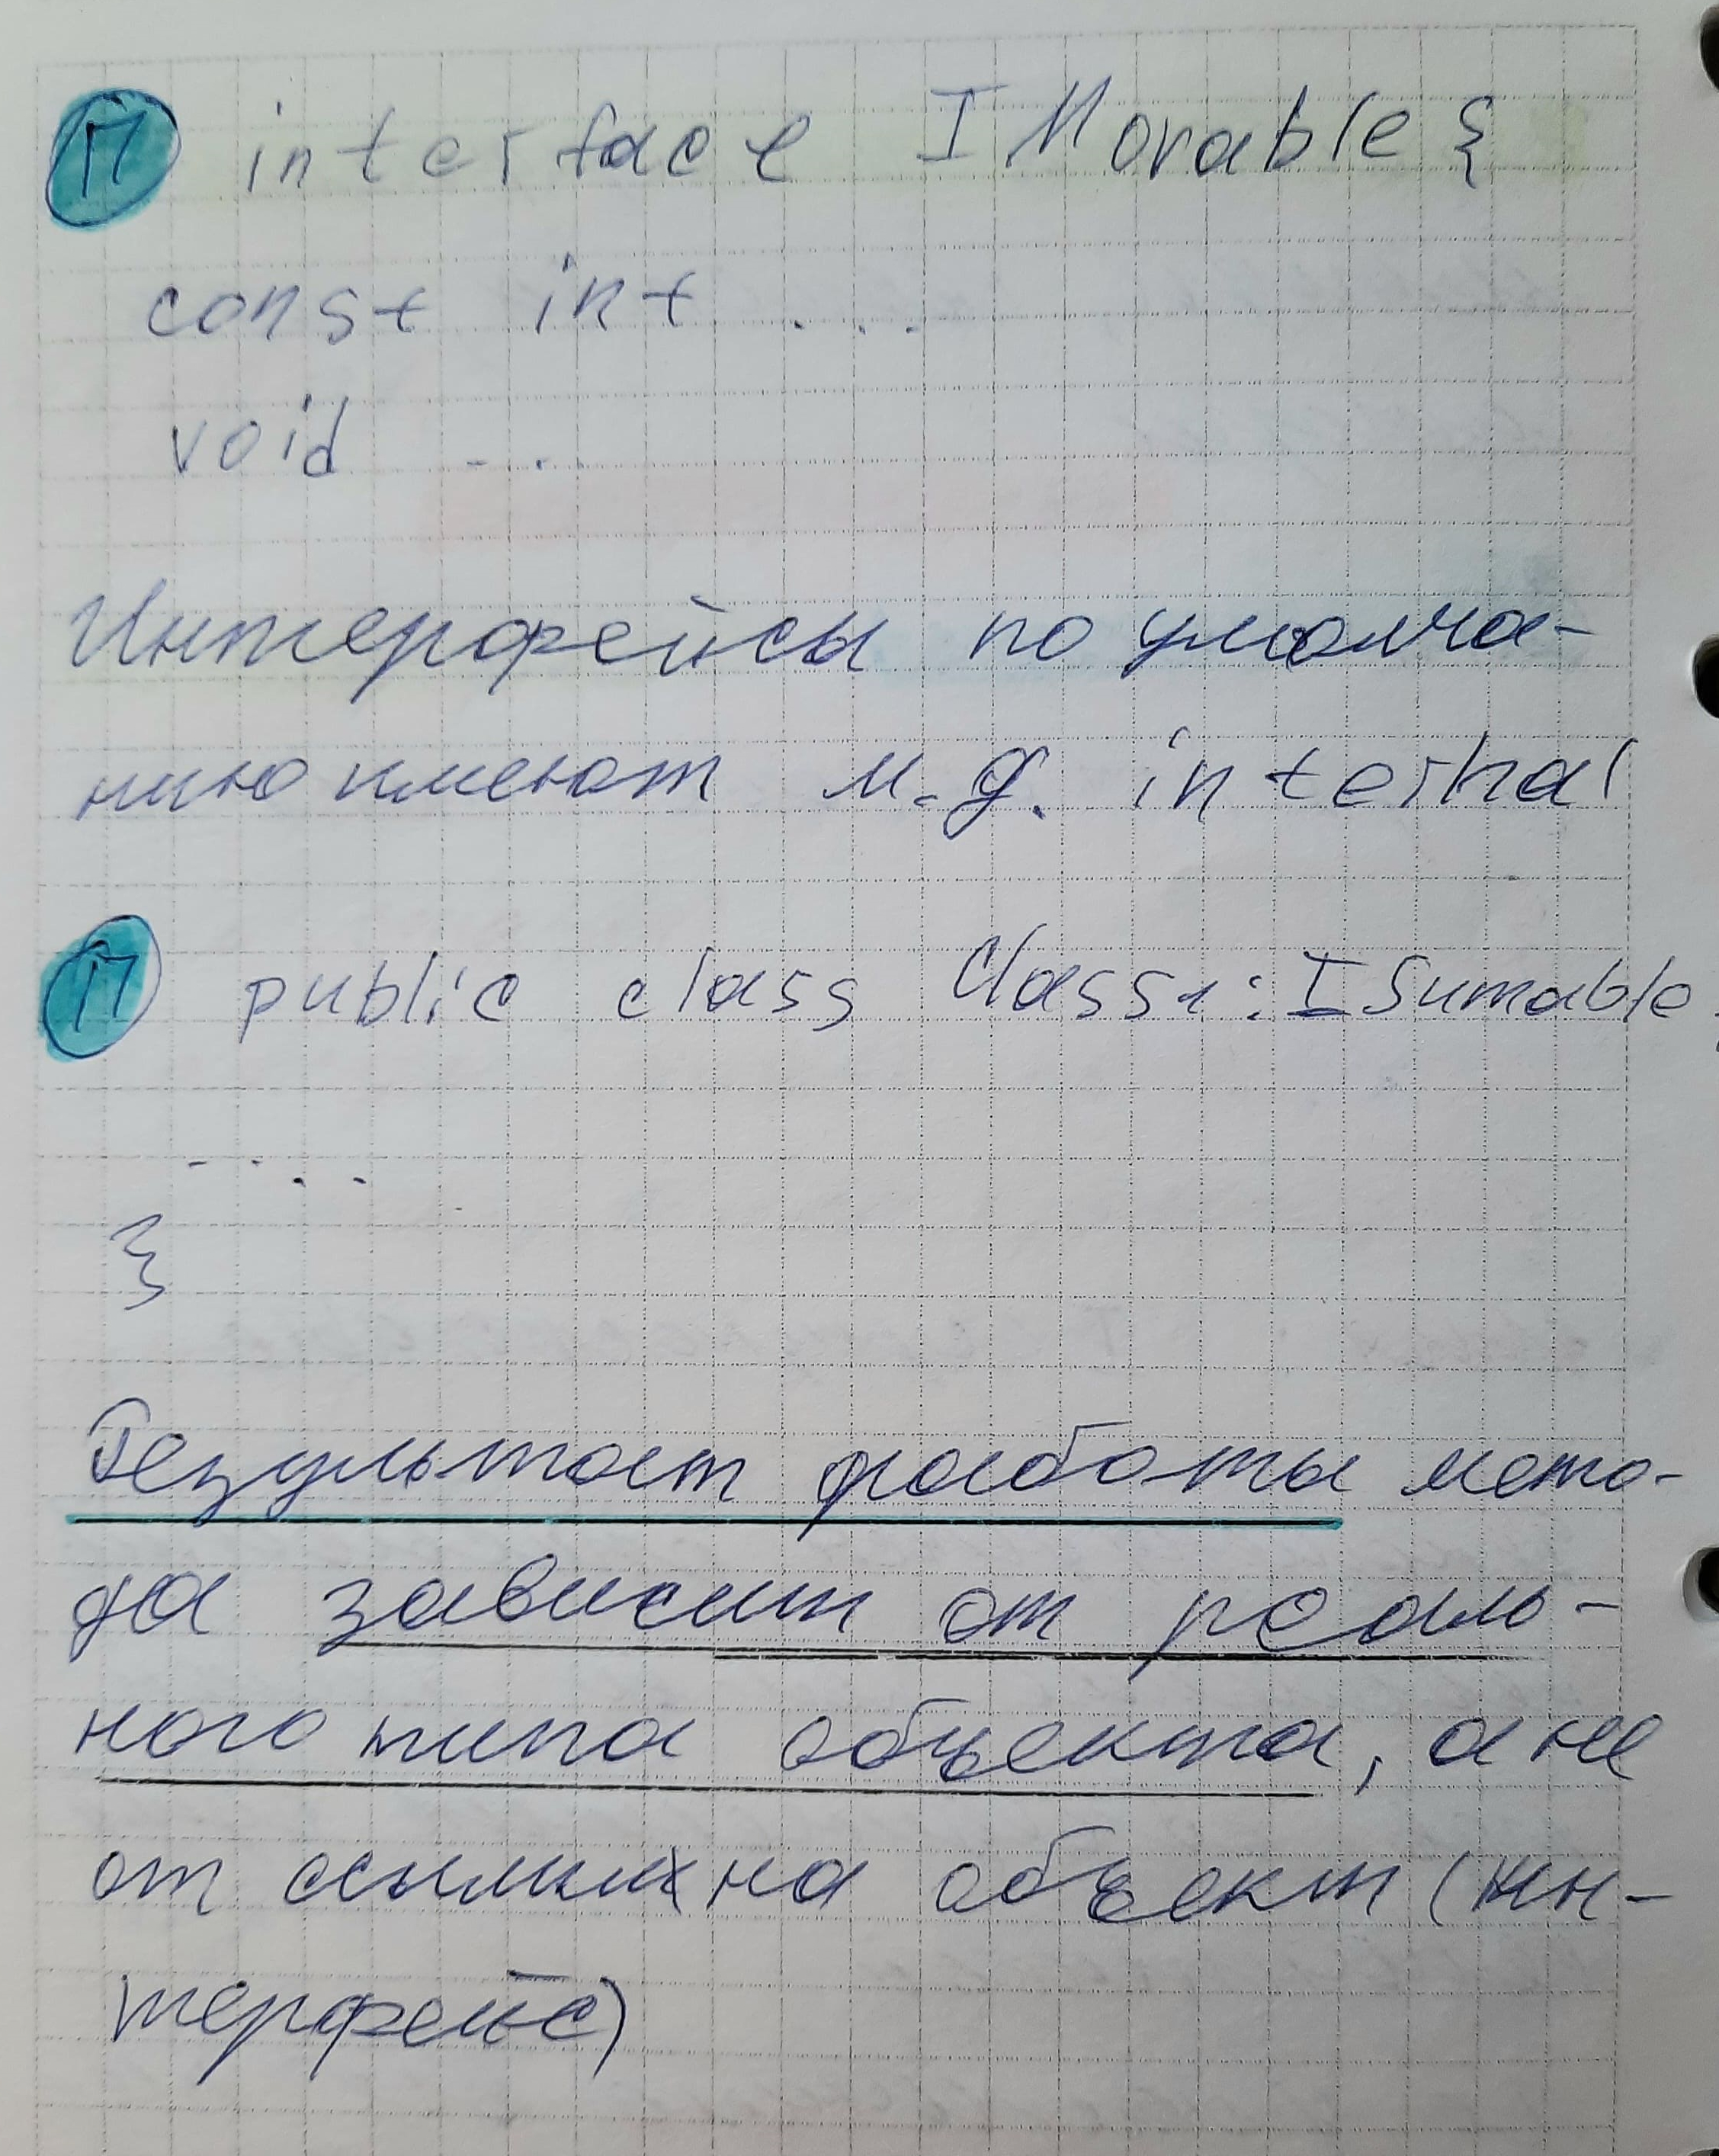 П interface IMovable {
const int ...
void ...
Интерфейсы по умолча-
нию имеют м.д. internal
П public class Class1: ISumable
....
}
Результат работы мето-
да зависит от реаль-
ного типа объекта, а не
от ссылки на объект (ин-
терфейс)